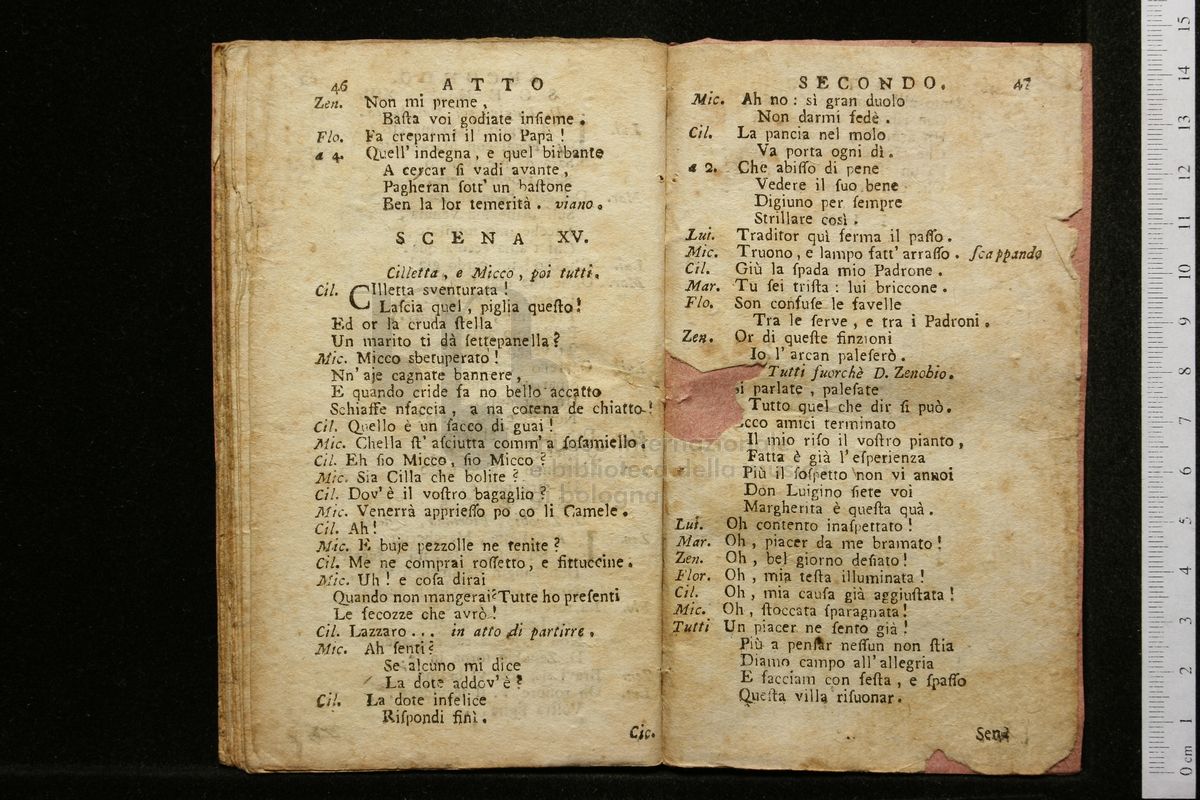 46 ATTO
Zen. Non mi preme,
Baſta voi godiate inſieme.
Flo. Fa creparmi il mio Papà!
a 4. Quell' indegna, e quel birbante
A cercar ſi vadi avante,
Pagheran ſott' un baſtone
Ben la lor temerità. viano.
SCENA XV.
Cilletta, e Micco, poi tutti.
Cil. CIlletta sventurata!
Laſcia quel, piglia queſto!
Ed or la cruda ſtella
Un marito ti dà ſettepanella?
Mic. Micco sbetuperato!
Nn'aje cagnate bannere,
E quando cride fa no bello accatto
Schiaffe nfaccia, a na cotena de chiatto!
Cil. Quello è un ſacco di guai!
Mic. Chella ſt'aſciutta comm'a ſoſamiello.
Cil. Eh ſio Micco, ſio Micco?
Mic. Sia Cilla che bolite?
Cil. Dov'è il voſtro bagaglio?
Mic. Venerrà appriesso po co li Camele.
Cil. Ah!
Mic. E buje pezzolle ne tenite?
Cil. Me ne comprai roſſetto, e fittuccine.
Mic. Uh! e coſa dirai
Quando non mangerai? Tutte ho preſenti
Le ſecozze che avrò!
Cil. Lazzaro... in atto di partirre.
Mic. Ah ſenti?
Se alcuno mi dice
La dote addov'è?
Cil. La dote infelice
Riſpondi finì.
Cic.
SECONDO. 47
Mic. Ah no: sì gran duolo
Non darmi fedè.
Cil. La pancia nel molo
Va porta ogni dì.
a 2. Che abiſſo di pene
Vedere il ſuo bene
Digiuno per ſempre
Strillare così.
Lui. Traditor quì ferma il paſſo.
Mic. Truono, e lampo fatt'arraſſo. ſcappando
Cil. Giù la ſpada mio Padrone.
Mar. Tu ſei triſta: lui briccone.
Flo. Son confuſe le favelle
Tra le ſerve, e tra i Padroni.
Zen. Or di queſte finzioni
Io l'arcan paleſerò.
Tutti fuorchè D. Zenobio.
parlate, paleſate
Tutto quel che dir ſi può.
amici terminato
Il mio riſo il voſtro pianto,
Fatta è già l'eſperienza
Più il ſoſpetto non vi annoi
Don Luigino ſiete voi
Margherita è queſta quà.
Lui. Oh contento inaſpettato!
Mar. Oh, piacer da me bramato!
Zen. Oh, bel giorno deſiato!
Flor. Oh, mia teſta illuminata!
Cil. Oh, mia cauſa già aggiuſtata!
Mic. Oh, ſtoccata ſparagnata!
Tutti Un piacer ne ſento già!
Più a penſar neſſun non ſtia
Diamo campo all'allegria
E facciam con feſta, e ſpaſſo
Queſta villa riſuonar.